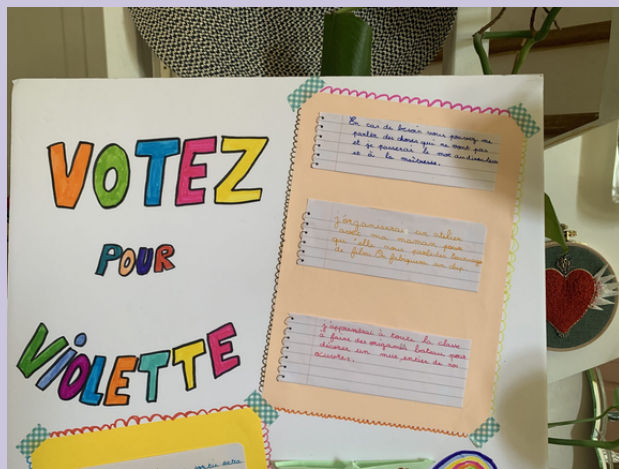 VOTEZ
POUR
VIOLETTE
En cas de besoin vous pouvez me
parler des choses qui ne vont pas
et je passerai le mot au directeur
et à la maîtresse.
j'organiserai un atelier
avec ma maman pour
qu'elle nous parle des tournage
de films. On fabriquera un clap.
j'apprendrai à toute la classe
à faire des origamis bateau pour
décorer un mur entier de nos
œuvres.